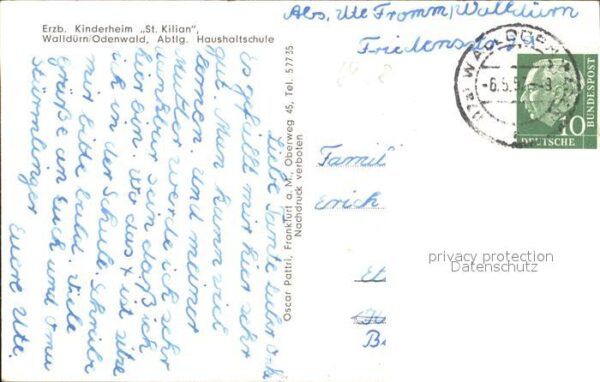 Erzb. Kinderheim „St. Kilian",
Walldürn/Odenwald, Abtlg. Haushaltschule
Abs. Ute Fromm, Walldürn
Friedens
Liebe Tante
Es gefällt mir hier sehr
gut. Man kann viel
lernen. Und meiner
Mutter werde ich sehr
dankbar sein daß ich
hier bin. Wo das x ist sitze
ich in der Schule. Schreibt
mir bitte bald. Viele
Grüße an Euch und Oma
Eure Ute.
Oscar Pattri, Frankfurt a. M., Oberweg 45, Tel. 57735
Nachdruck verboten
WALLDÜRN
-6.5.5
10
DEUTSCHE
BUNDESPOST
Famil
Erich
privacy protection
Datenschutz